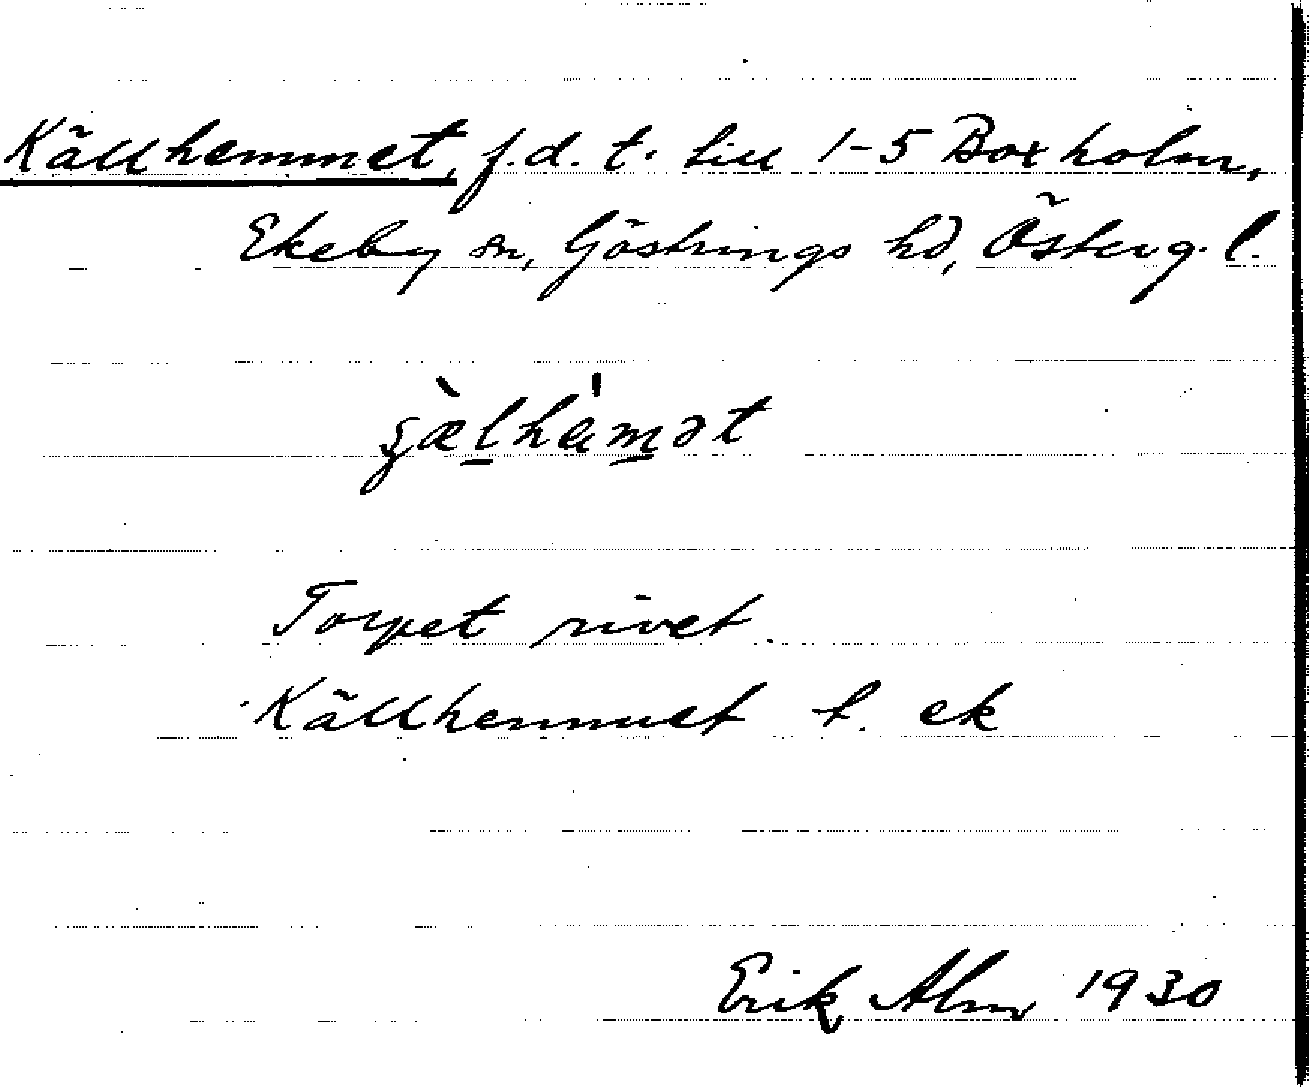 Källhemmet, f.d. t. till 1-5 Boxholm,
Ekeby sn, Göstrings hd, Österg. l.
Torpet rivet.
Källhemmet t. ek
Erik Alm 1930